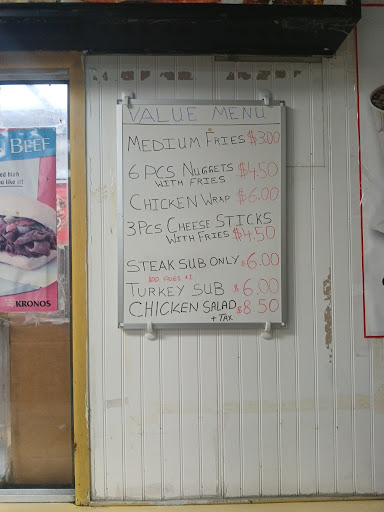 BEEF
KRONOS
VALUE MENU
MEDIUM FRIES $3.00
6 PCS NUGGETS
WITH FRIES $4.50
CHICKEN WRAP $6.00
3PCS CHEESE STICKS
WITH FRIES $4.50
STEAK SUB ONLY $6.00
ADD FRIES $1
TURKEY SUB $6.00
CHICKEN SALAD $8.50
+ TAX